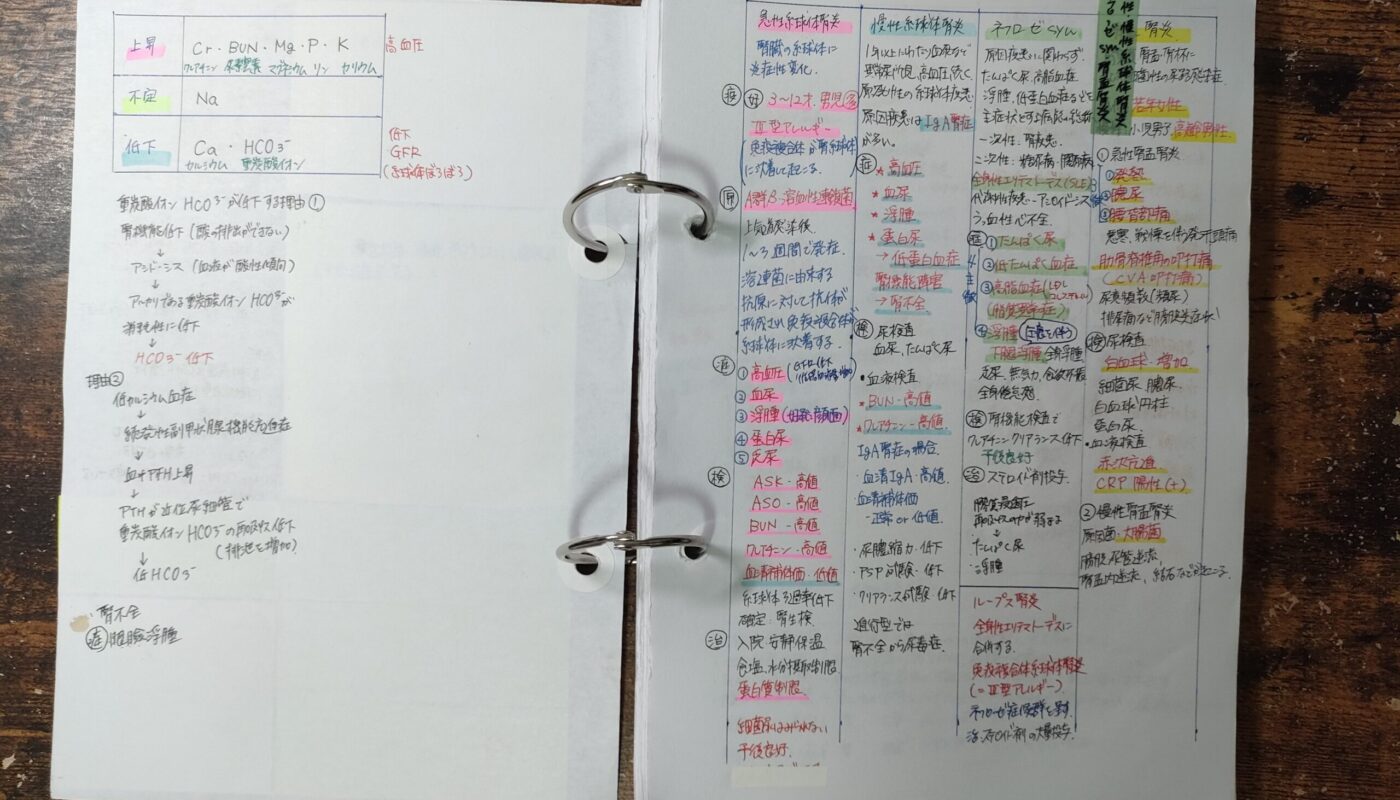 上昇
Cr・BUN・Mg・P・K
クレアチニン 尿素窒素 マグネシウム リン カリウム
高血圧
不定
Na
低下
Ca・HCO3⁻
カルシウム 重炭酸イオン
低下
GFR
(糸球体ぼろぼろ)
重炭酸イオン HCO3⁻が低下する理由①
腎機能低下(酸の排出ができない)
↓
アシドーシス(血液が酸性に傾向)
↓
アルカリである重炭酸イオン HCO3⁻が
消耗性に低下
↓
HCO3⁻低下
理由②
低カルシウム血症
↓
続発性副甲状腺機能亢進症
↓
血中PTH上昇
↓
PTHが近位尿細管で
重炭酸イオンHCO3⁻の再吸収低下
(排泄を増加)
↓
低HCO3⁻
腎不全
眼瞼浮腫
急性糸球体腎炎
腎臓の糸球体に
炎症性変化.
疫 好 3〜12才.男児多
Ⅲ型アレルギー
免疫複合体が腎糸球体
に沈着して起こる.
原 A群β-溶血性連鎖菌
上気道感染後.
1〜3週間で発症.
溶連菌に由来する
抗原に対して抗体が
形成され免疫複合体が
糸球体に沈着する.
① 高血圧
② 血尿
③ 浮腫(好発・顔面)
④ 蛋白尿
⑤ 乏尿
検 ASK・高値
ASO・高値
BUN・高値
クレアチニン・高値
血清補体価・低値
糸球体ろ過率低下
確定・腎生検
治 入院・安静・保温
食塩、水分摂取制限
蛋白質制限
細菌尿はみられない
予後良好.
慢性糸球体腎炎
1年以上にわたり血尿など
高血圧続く
原発性の糸球体疾患
原因疾患はIgA腎症
が多い.
症 ★高血圧
★血尿
★浮腫
★蛋白尿
→低蛋白血症
腎機能障害
→腎不全
検 尿検査
血尿、たんぱく尿
・血液検査
★BUN-高値
★クレアチニン-高値
IgA腎症の場合
・血清IgA・高値
・血清補体価
-正常 or 低値.
・尿濃縮力・低下
・PSP試験・低下
・クリアランス試験・低下
進行型では
腎不全から尿毒症.
ネフローゼsym
原因疾患に関わらず.
たんぱく尿、高脂血症
浮腫、低蛋白血症などを
主症状とする病気の総称
一次性:腎疾患
二次性:糖尿病・膠原病
全身性エリテマトーデス(SLE)
代謝性疾患・アミロイドーシス
うっ血性心不全.
症 ①たんぱく尿
②低たんぱく血症
4主徴
③高脂血症(LDLコレステロール)
(脂質異常症)
④浮腫(圧痕を伴う)
下腿浮腫、全身浮腫
乏尿、無気力、食欲不振
全身倦怠感
検 腎機能検査で
クレアチニンクリアランス低下
予後良好
治 ステロイド剤投与.
↓
たんぱく尿
浮腫
ループス腎炎
全身性エリテマトーデスに
合併する.
免疫複合体糸球体腎炎
(=Ⅲ型アレルギー)
ネフローゼ症候群を呈す.
治:ステロイド剤の大量投与.
性慢性糸球体腎炎
ゼsym 腎盂腎炎
腎炎
腎盂・腎杯に
若年女性
小児男子 高齢男性.
①急性腎盂腎炎
①発熱
②膿尿
③腰背部痛
悪寒、戦慄を伴う発汗、頭痛
肋骨脊椎角の叩打痛
(CVA叩打痛)
尿意頻数(頻尿)
排尿痛など膀胱炎症状
検 尿検査
白血球・増加
細菌尿、膿尿、
白血球円柱
蛋白尿.
・血液検査
赤沈亢進
CRP陽性(+)
②慢性腎盂腎炎
原因菌・大腸菌
膀胱尿管逆流、
腎盂内逆流、結石などで起こる.